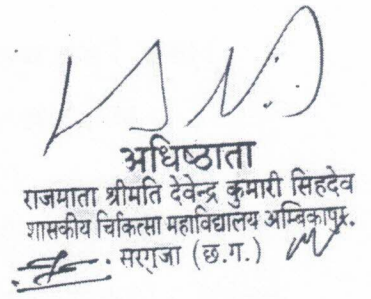 अधिष्ठाता
राजमाता श्रीमति देवेन्द्र कुमारी सिहदेव
शासकीय चिकित्सा महाविद्यालय अम्बिकापुर.
सरगुजा (छ.ग.)